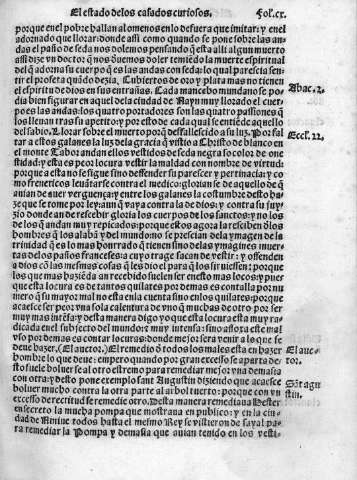 El estado delos casados curiosos. Fol.cx.
porque enel pobre hallan alomenos enlo defuera que imitar: y enel
adornado que llorar: donde assi como quando se pone sobre las an-
das el paño de seda nos dolemos pensando q̃ esta alli algun muerto
assi dize vn doctor q̃ nos deuemos doler temiēdo la muerte spiritual
del q̃ adorna su cuerpo q̃ es las andas con seda: lo qual parecia sen-
tir el propheta quādo dezia, Cubiertos de oro y plata mas no tienen
el espiritu de dios en sus entrañas. Cada mancebo mundano se po
dia bien figurar en aquel dela ciudad de Nayn muy llorado el cuer-
po es las andas: los quatro portadores son las quatro passiones q̃
los lleuan tras su apetito: y por esto de cada qual se entiēde aquello
del sabio. Llorar sobre el muerto porq̃ desfallescio a su luz. Por fal
tar a estos galanes la luz dela gracia q̃ vistio a Christo de blanco en
el monte Tabor andan ellos vestidos de seda negra so color de one
stidad: y esta es peor locura vestir la maldad con nombre de virtud:
porque a esta no se sigue sino deffender su parescer y pertinacia: y co
mo freneticos leuātarse contra el medico: glorian se de aquello de q̃
auian de auer verguença: y entre los galanes la costumbre desto ha-
ze que se tome por ley: aun q̃ vaya contra la de dios: y contra su juy-
zio donde an de recebir gloria los cuerpos de los sanctos: y no los
de los q̃ andan muy repicados: porque estos agora la resciben dlos
hombres q̃ los alabā y del mundo se prescian dela ymagen de la
trinidad q̃ es lo mas hōrrado q̃ tienen sino delas ymagines muer-
tas delos paños franceses: a cuyo trage sacan de vestir: y offenden
a dios cō las mesmas cosas q̃ les dio el para q̃ los siruiessen: porque
los que mas haziēda an recebido suelen ser enesto mas locos: y puer
que esta locura es de tantos quilates por demas es contalla por nu
mero q̃ su mayor mal no esta enla cuenta sino enlos quilates: porque
acaesce ser peor vna sola calentura de vno q̃ muchas de otro por ser
muy mas intēsa: y desta manera digo yo que esta locura esta muy ra
dicada enel subjecto del mundo: z muy intensa: sino afloxa este mal
vso por demas es contar locuras: donde mejor sera venir a lo que se
deue hazer. (El auctor.) El remedio d̃ todos los males esta en hazer
hombre lo que deue: empero quando por gran excesso se aparta de-
sto suele boluer se al otro estremo para remediar mejor vna demasia
con otra: y desto pone exemplo sant Augustin diziendo que acaesce
boluer mucho contra la otra parte al arbol tuerto: porque con vn
excesso de rectitud se remedie otro. Desta manera remediaua Hester
en secreto la mucha pompa que mostraua en publico: y en la ciu-
dad de Niniue todos hasta el mesmo Rey se vistieron de sayal pa-
ra remediar la Pompa y demasia que auian tenido en los vesti-
Abac.2.
Eccl.22.
El auc-
tor.
Sāt agu
stin.